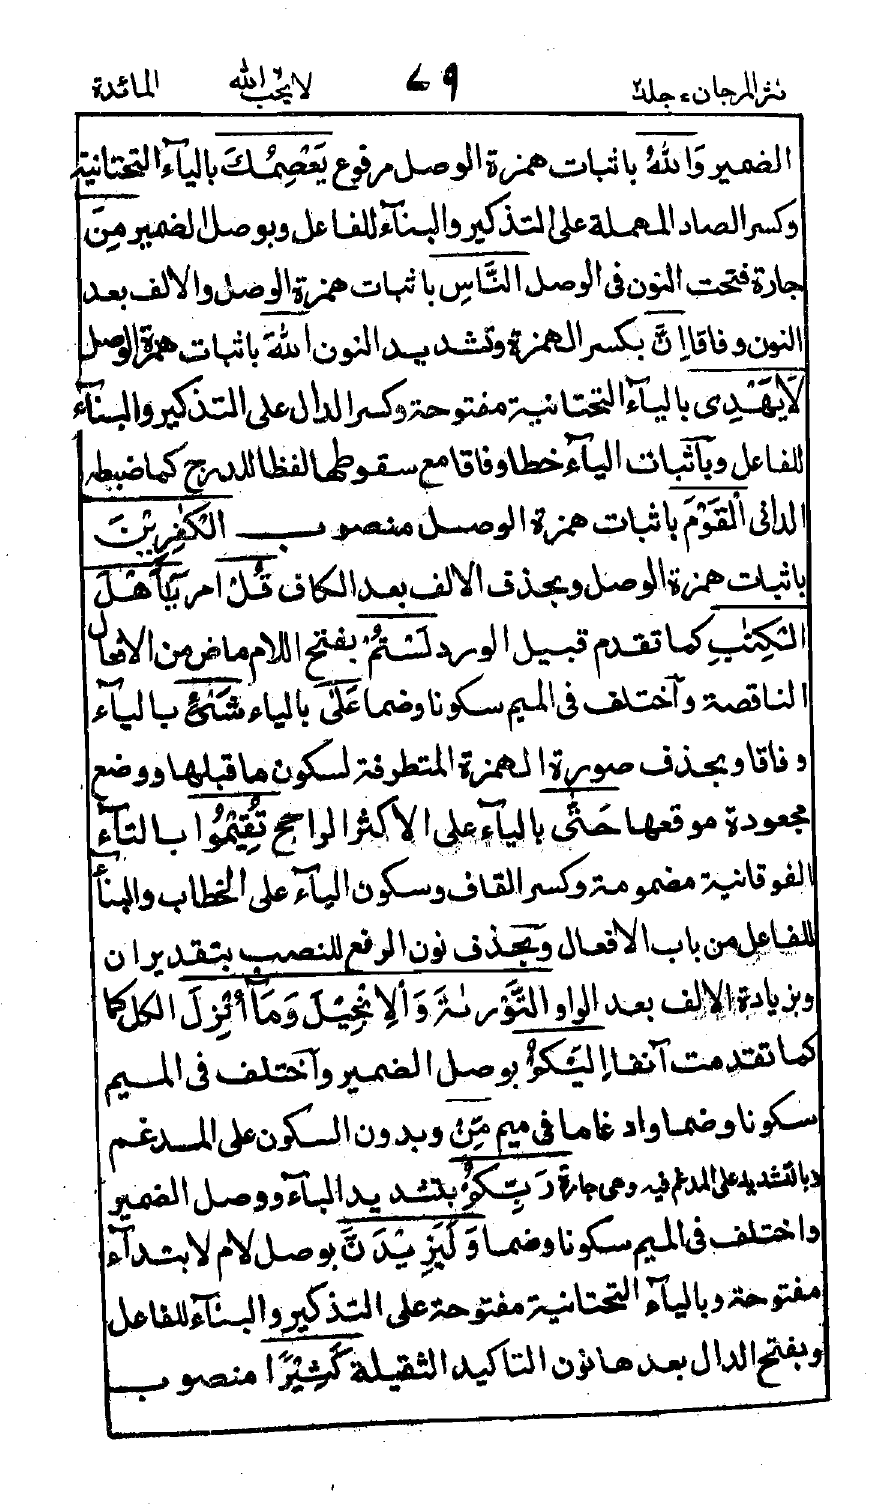 نثر المرجان، جلد ٢ ٧٩ لا يحب الله المائدة
الضمير وَاللهُ باثبات همزة الوصل مرفوع يَعْصِمُكَ بالياء التحتانية
وكسر الصاد المهملة على التذكير والبناء للفاعل وبوصل الضمير مِنَ
جارة فتحت النون فى الوصل النَّاسِ باثبات همزة الوصل والالف بعد
النون وفاقا اِنَّ بكسر الهمزة وتشديد النون اللهَ باثبات همزة الوصل
لَا يَهْدِى بالياء التحتانية مفتوحة وكسر الدال على التذكير والبناء
للفاعل وباثبات الياء خطا وفاقا مع سقوطها لفظا للدرج كما ضبطه
الدانى الْقَوْمَ باثبات همزة الوصل منصوب الْكٰفِرِيْنَ
باثبات همزة الوصل وبحذف الالف بعد الكاف قُلْ امر يٰٓاَهْلَ
الْكِتٰبِ كما تقدم قبيل الورد لَسْتُمْ بفتح اللام ماض من الافعال
الناقصة واختلف فى الميم سكونا وضما عَلٰى بالياء شَىْءٍ بالياء
وفاقا وبحذف صورة الهمزة المتطرفة لسكون ما قبلها ووضع
مجعودة موقعها حَتّٰى بالياء على الاكثر الراجح تُقِيْمُوْا بالتاء
الفوقانية مضمومة وكسر القاف وسكون الياء على الخطاب والبناء
للفاعل من باب الافعال وبحذف نون الرفع للنصب بتقدير ان
وبزيادة الالف بعد الواو التَّوْرٰىةَ وَالْاِنْجِيْلَ وَمَآ اُنْزِلَ الكل كما
كما تقدمت آنفا اِلَيْكُمْ بوصل الضمير واختلف فى الميم
سكونا وضما وادغاما فى ميم مِّنْ وبدون السكون على المدغم
وبالتشديد على المدغم فيه وهى جارة رَبِّكُمْ بتشديد الباء ووصل الضمير
واختلف فى الميم سكونا وضما وَلَيَزِيْدَنَّ بوصل لام لابتداء
مفتوحة وبالياء التحتانية مفتوحة على التذكير والبناء للفاعل
وبفتح الدال بعدها نون التاكيد الثقيلة كَثِيْرًا منصوب